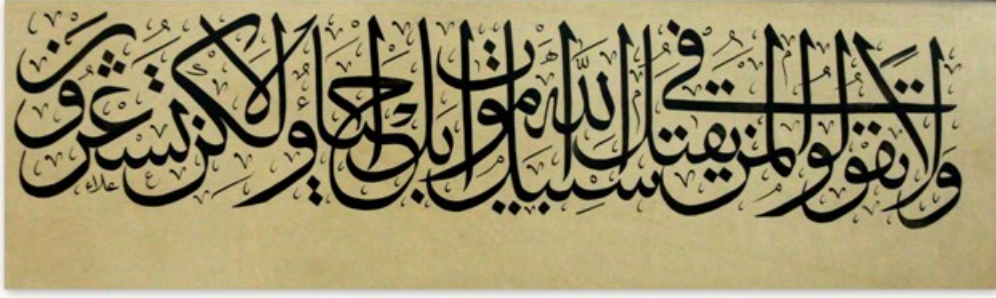 ولا تقولوا لمن يقتل في سبيل الله أموات بل أحياء ولكن لا تشعرون
علاء